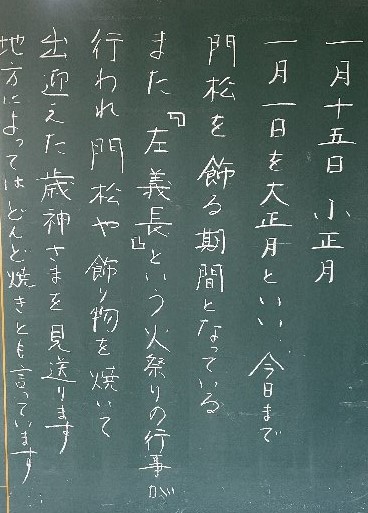 一月十五日 小正月
一月一日を大正月といい、今日まで
門松を飾る期間となっている
また『左義長』という火祭りの行事が
行われ門松や飾り物を焼いて
出迎えた歳神さまを見送ります
地方によってはどんど焼きとも言っています